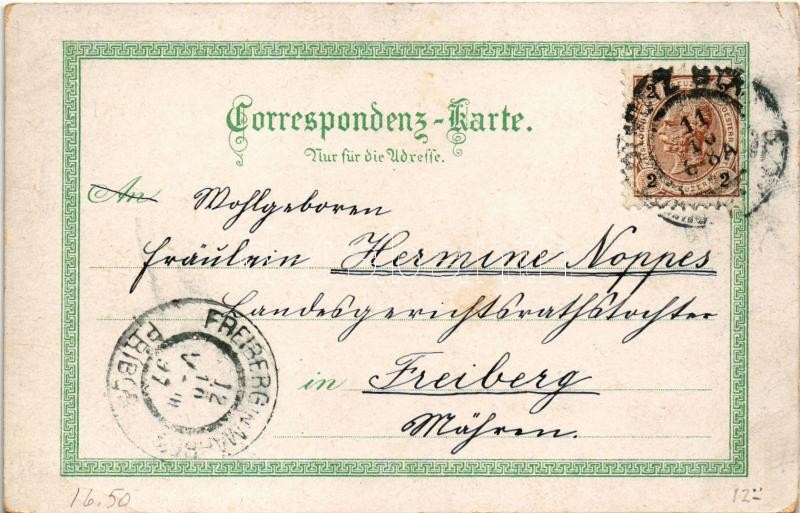 Correspondenz-Karte.
Nur für die Adresse.
An Wohlgeboren
Fräulein Hermine Noppes
Landesgerichtsrathstochter
in Freiberg
Mähren.
FREIBERG IN MÄHREN
PŘIBOR
12
10
97
V
11
2
2
2
2
16.50
12